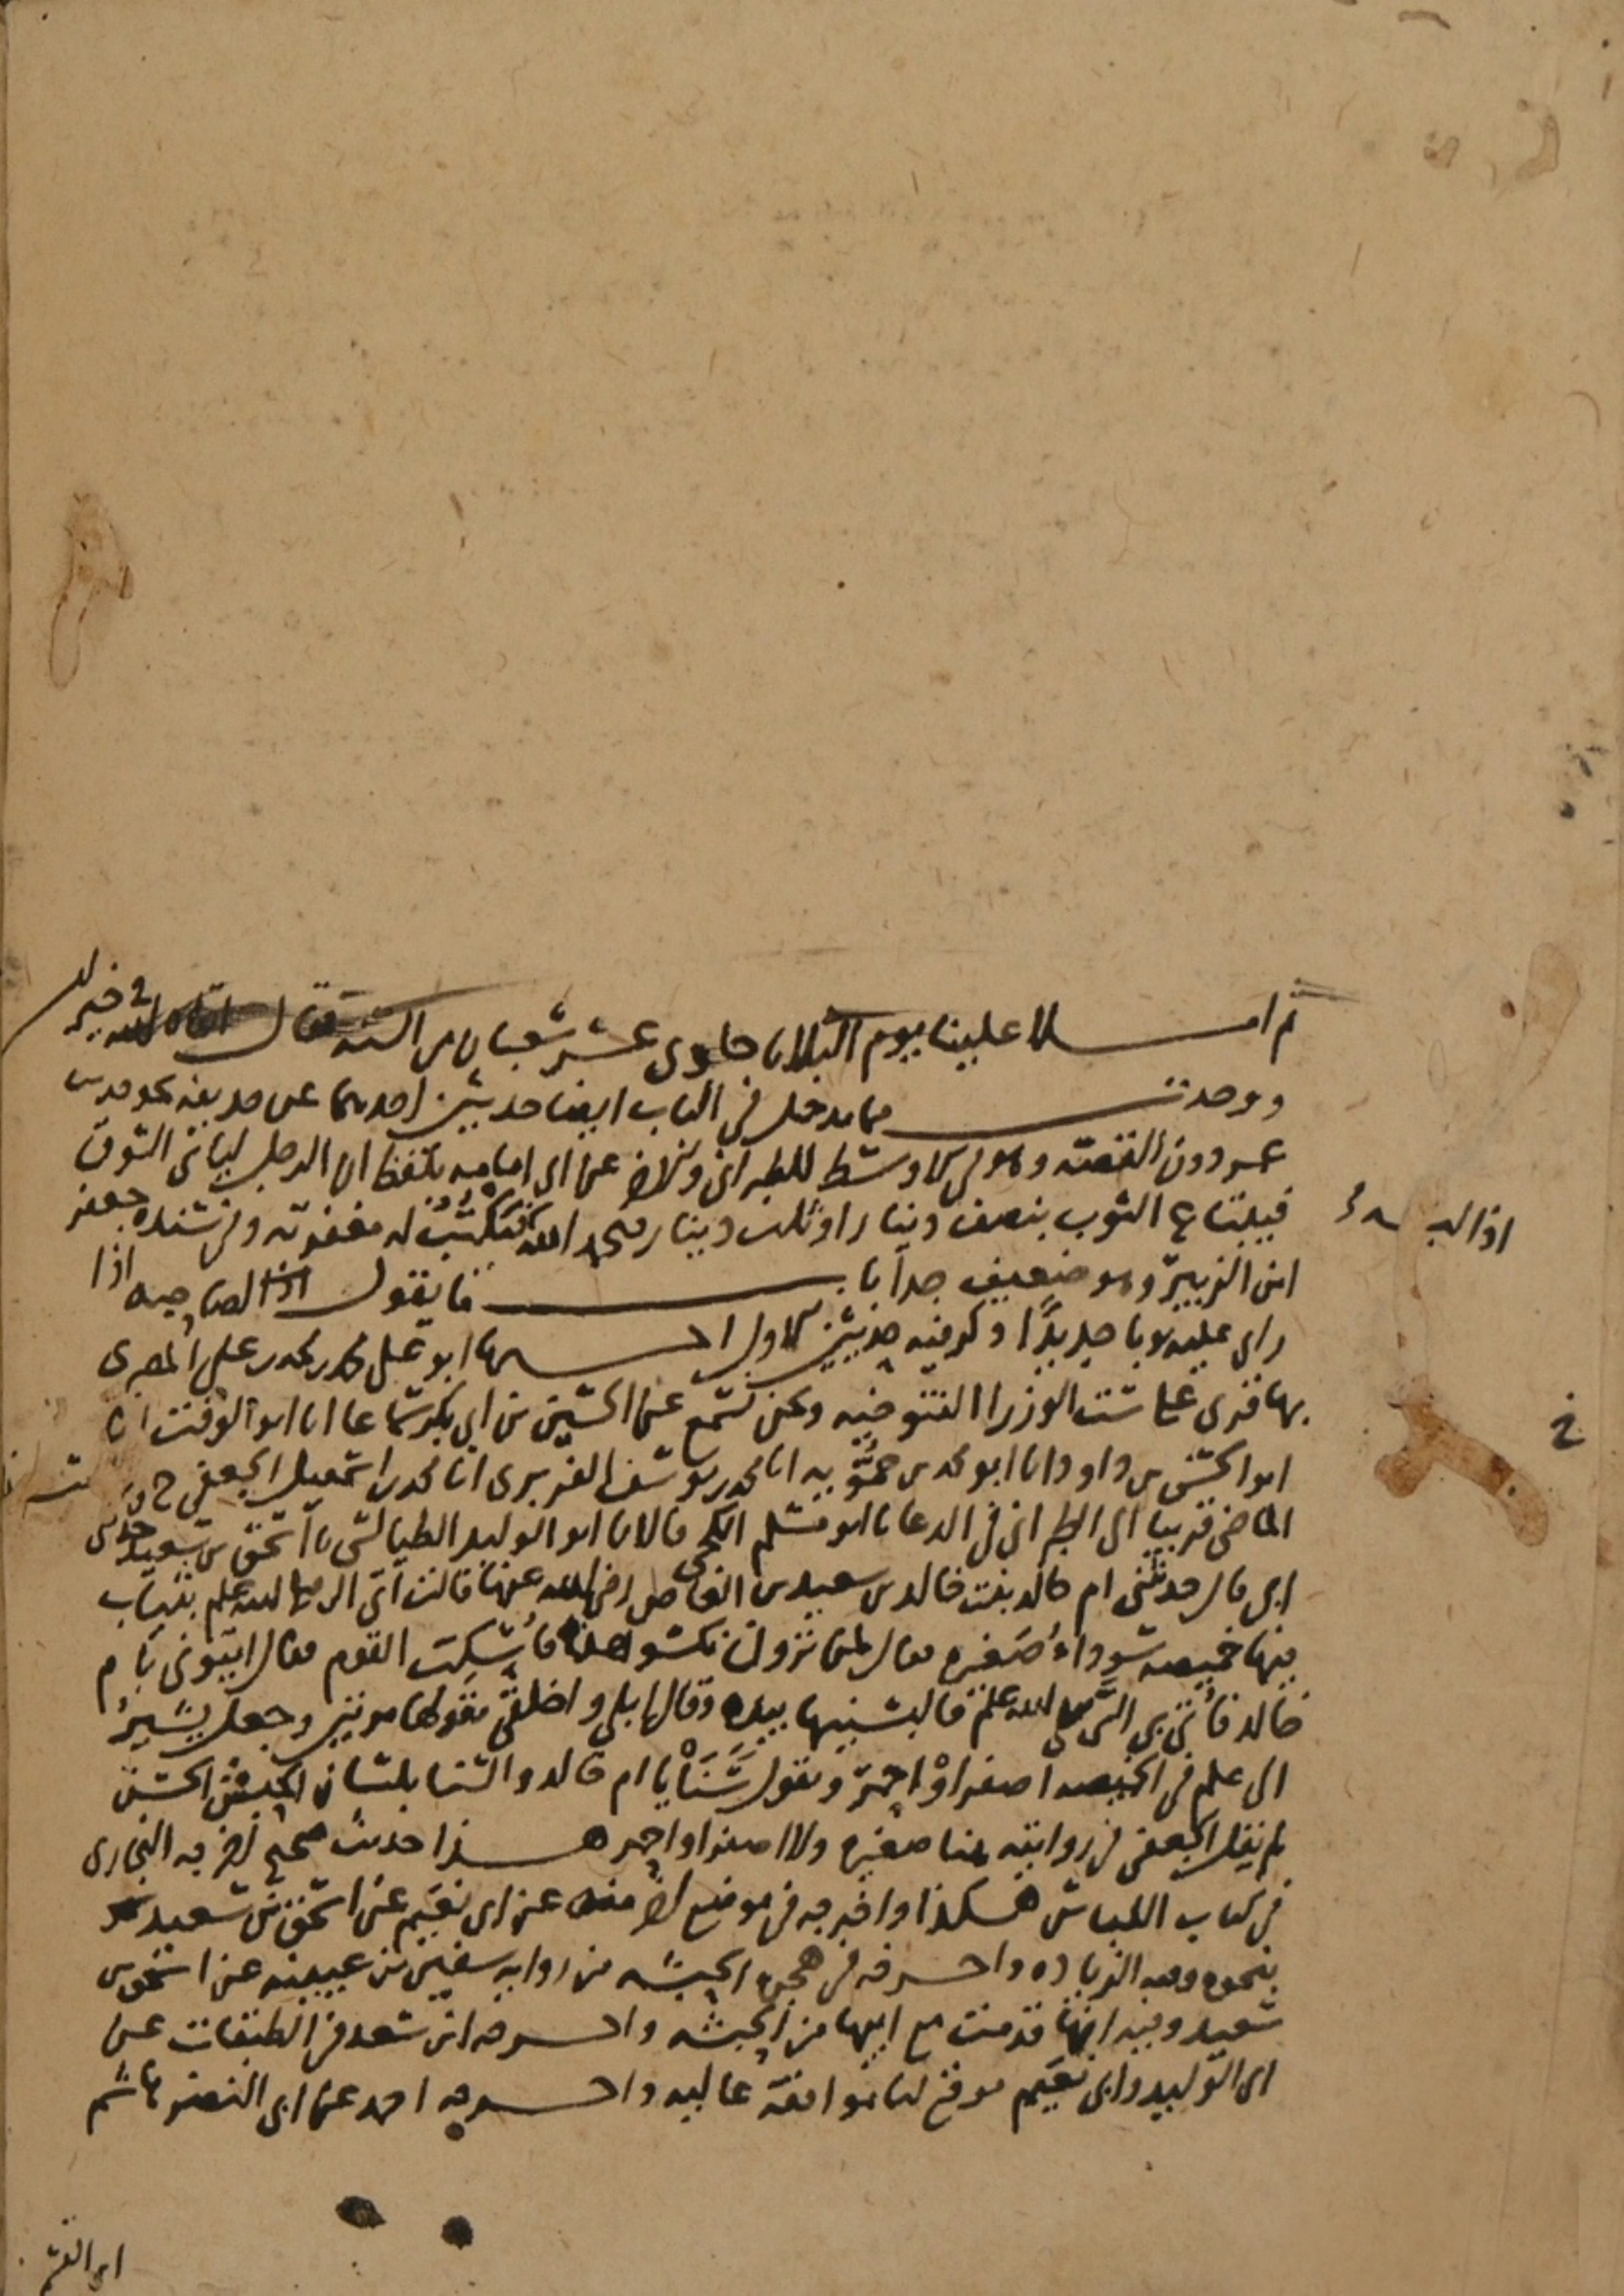 ثم املا علينا يوم الثلاثا حادى عشر شعبان من السنه فقال
ووجدت مما يدخل في الباب ايضا حديثين احدهما عن حذيفه نحو حديث
عمر دون القصة وهو في الاوسط للطبراني والاخر عن ابي امامه بلفظ ان الرجل لياتى السوق
فيبتاع الثوب بنصف دينار او ثلث دينار فيحمد الله فتكتب له مغفرته وفي سنده جعفر
ابن الزبير وهو ضعيف جدا باب ما يقول لصاحبه اذا
راى عليه ثوبا جديدا وذكر فيه حديثين الاول اخبرنا ابو على محمد بن محمد بن على المصرى
بها قرى على ست الوزرا التنوخيه ونحن نسمع عن الحسين بن ابى بكر سماعا انا ابو الوقت انا
ابو الحسن بن داود انا ابو محمد بن حمويه انا محمد بن يوسف الفربرى انا محمد بن اسمعيل الجعفى ح
الماضى قريبا الى الطبراني في الدعا نا ابو مسلم الكجى قالا نا ابو الوليد الطيالسى نا اسحق بن سعيد حدثنى
ابى قال حدثتنى ام خالد بنت خالد بن سعيد بن العاصى رضى الله عنها قالت اتى النبى صلى الله عليه وسلم بثياب
فيها خميصه سوداء صغيره فقال لمن ترون نكسو هذه فأسكت القوم فقال ايتونى بام
خالد فأتى بى النبى صلى الله عليه وسلم فالبسنيها بيده وقال ابلى واخلقى يقولها مرتين وجعل يشير
الى علم فى الخميصه اصفر او احمر ويقول سنا يا ام خالد والسنا بلسان الحبش الحسن
لم يقل الجعفى في روايته عنا صغيره ولا اصفر او احمر هذا حديث صحيح اخرجه البخارى
فى كتاب اللباس هكذا واخرجه فى موضع اخر منه عن ابى نعيم عن اسحق بن سعيد
بنحوه وفيه الزياده واخرجه فى هجرة الحبشه من روايه سفين بن عيينه عن اسحق بن
سعيد وفيه انها قدمت مع ابيها من الحبشه واخرجه ابن سعد فى الطبقات عن
ابى الوليد وابى نعيم فوقع لنا موافقة عاليه واخرجه احمد عن ابى النضر هاشم